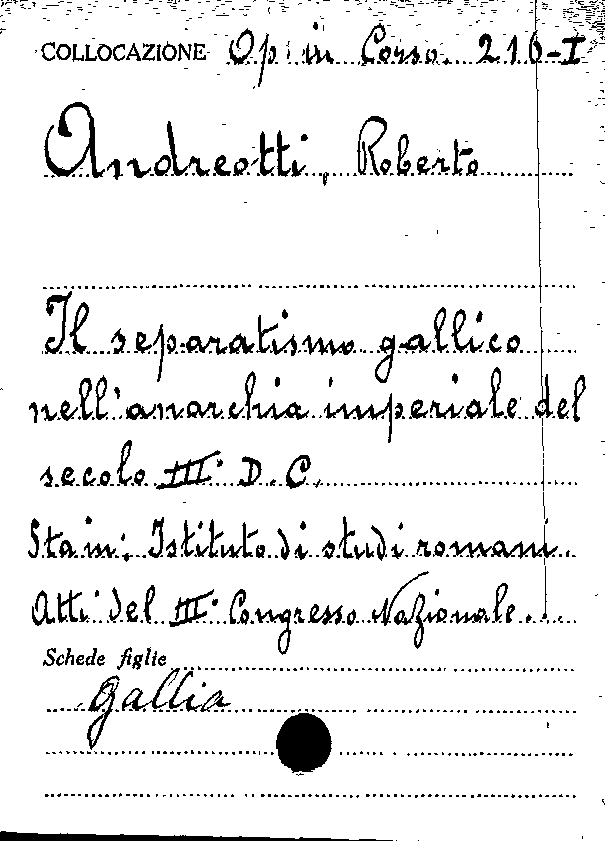 COLLOCAZIONE Op. in Corso. 216-I
Andreotti, Roberto
Il separatismo gallico
nell'anarchia imperiale del
secolo III° D.C.
Sta in: Istituto di studi romani.
Atti del III° Congresso Nazionale...
Schede figlie
Gallia